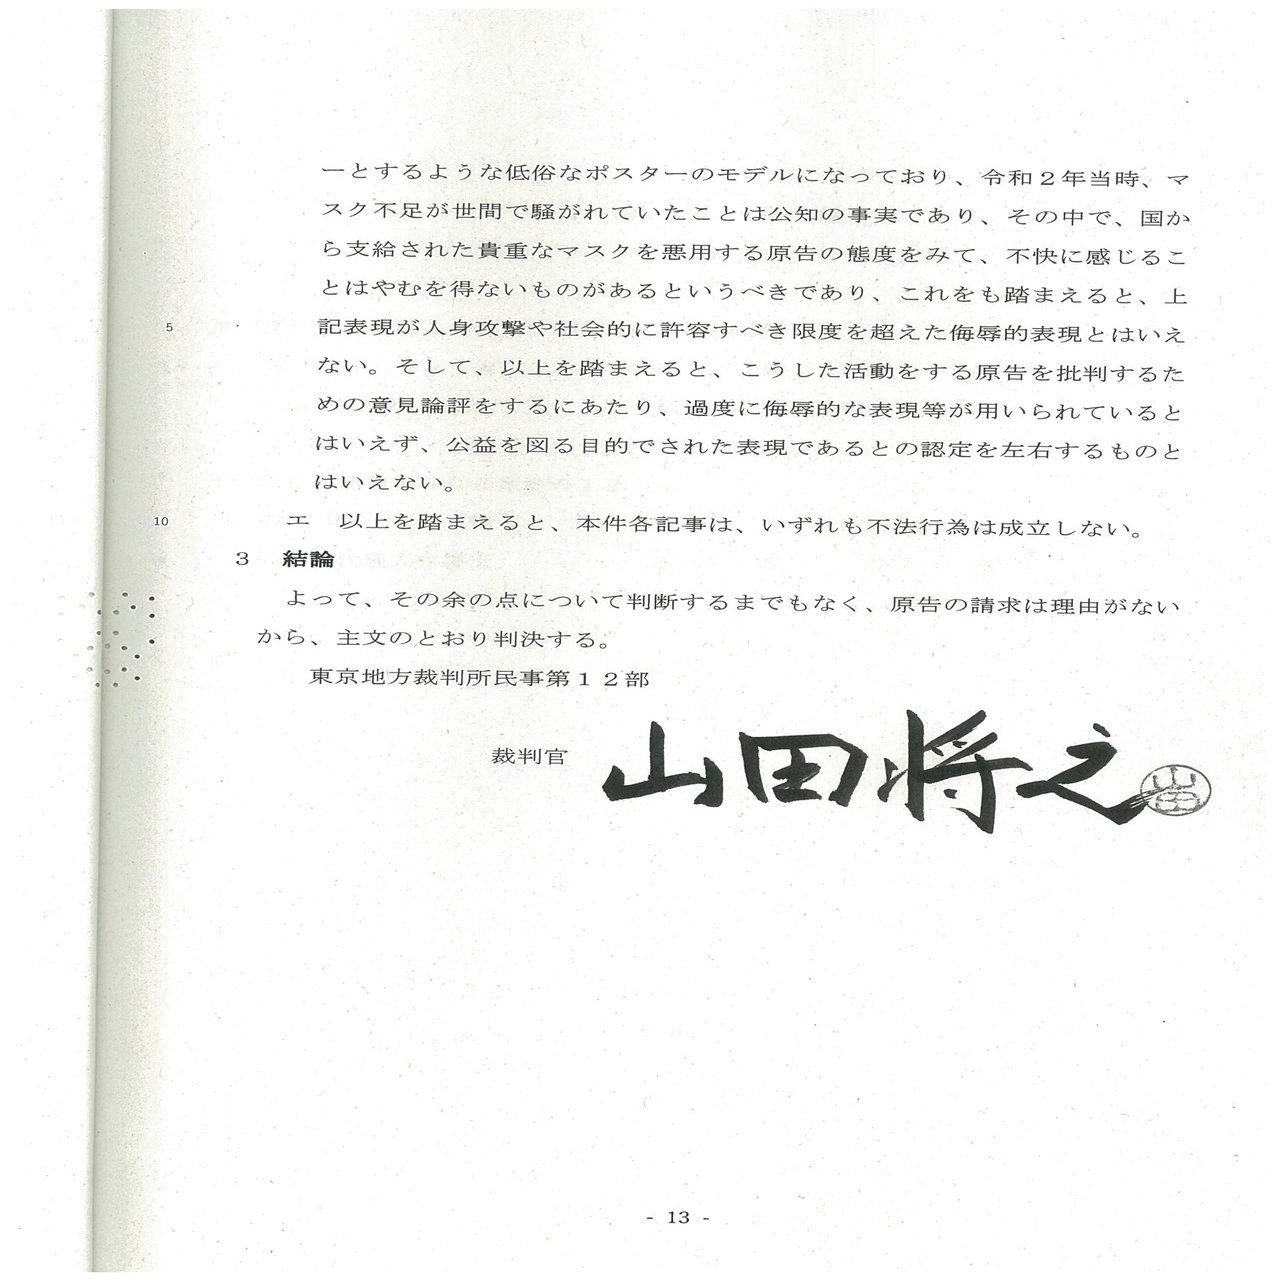 ーとするような低俗なポスターのモデルになっており、令和２年当時、マ
スク不足が世間で騒がれていたことは公知の事実であり、その中で、国か
ら支給された貴重なマスクを悪用する原告の態度をみて、不快に感じるこ
とはやむを得ないものがあるというべきであり、これをも踏まえると、上
5 記表現が人身攻撃や社会的に許容すべき限度を超えた侮辱的表現とはいえ
ない。そして、以上を踏まえると、こうした活動をする原告を批判するた
めの意見論評をするにあたり、過度に侮辱的な表現等が用いられていると
はいえず、公益を図る目的でされた表現であるとの認定を左右するものと
はいえない。
10 エ　以上を踏まえると、本件各記事は、いずれも不法行為は成立しない。
３　結論
よって、その余の点について判断するまでもなく、原告の請求は理由がない
から、主文のとおり判決する。
東京地方裁判所民事第１２部
裁判官　山田将之
山田
- 13 -